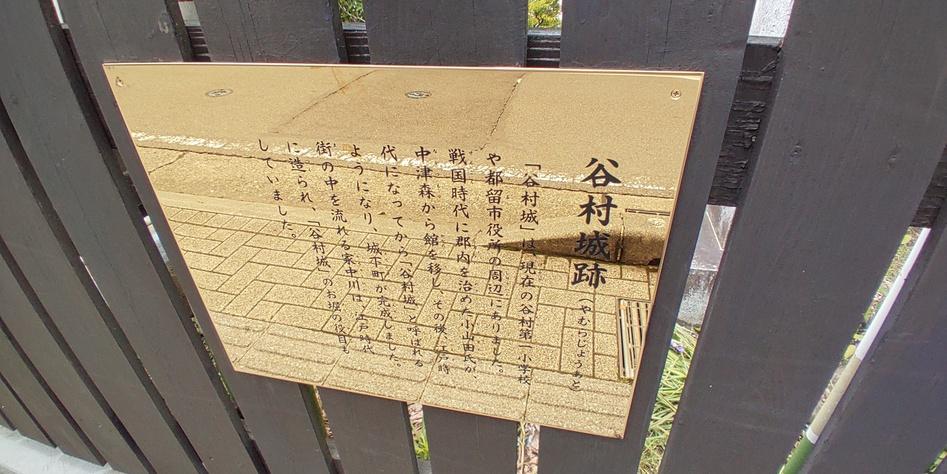 谷村城跡(やむらじょうあと)
「谷村城」は、現在の谷村第一小学校
や都留市役所の周辺にありました。
戦国時代に郡内を治めた小山田氏が、
中津森から館を移し、その後、江戸時
代になってから「谷村城」と呼ばれる
ようになり、城下町が完成しました。
街の中を流れる家中川は、江戸時代
に造られ、「谷村城」のお堀の役目も
していました。